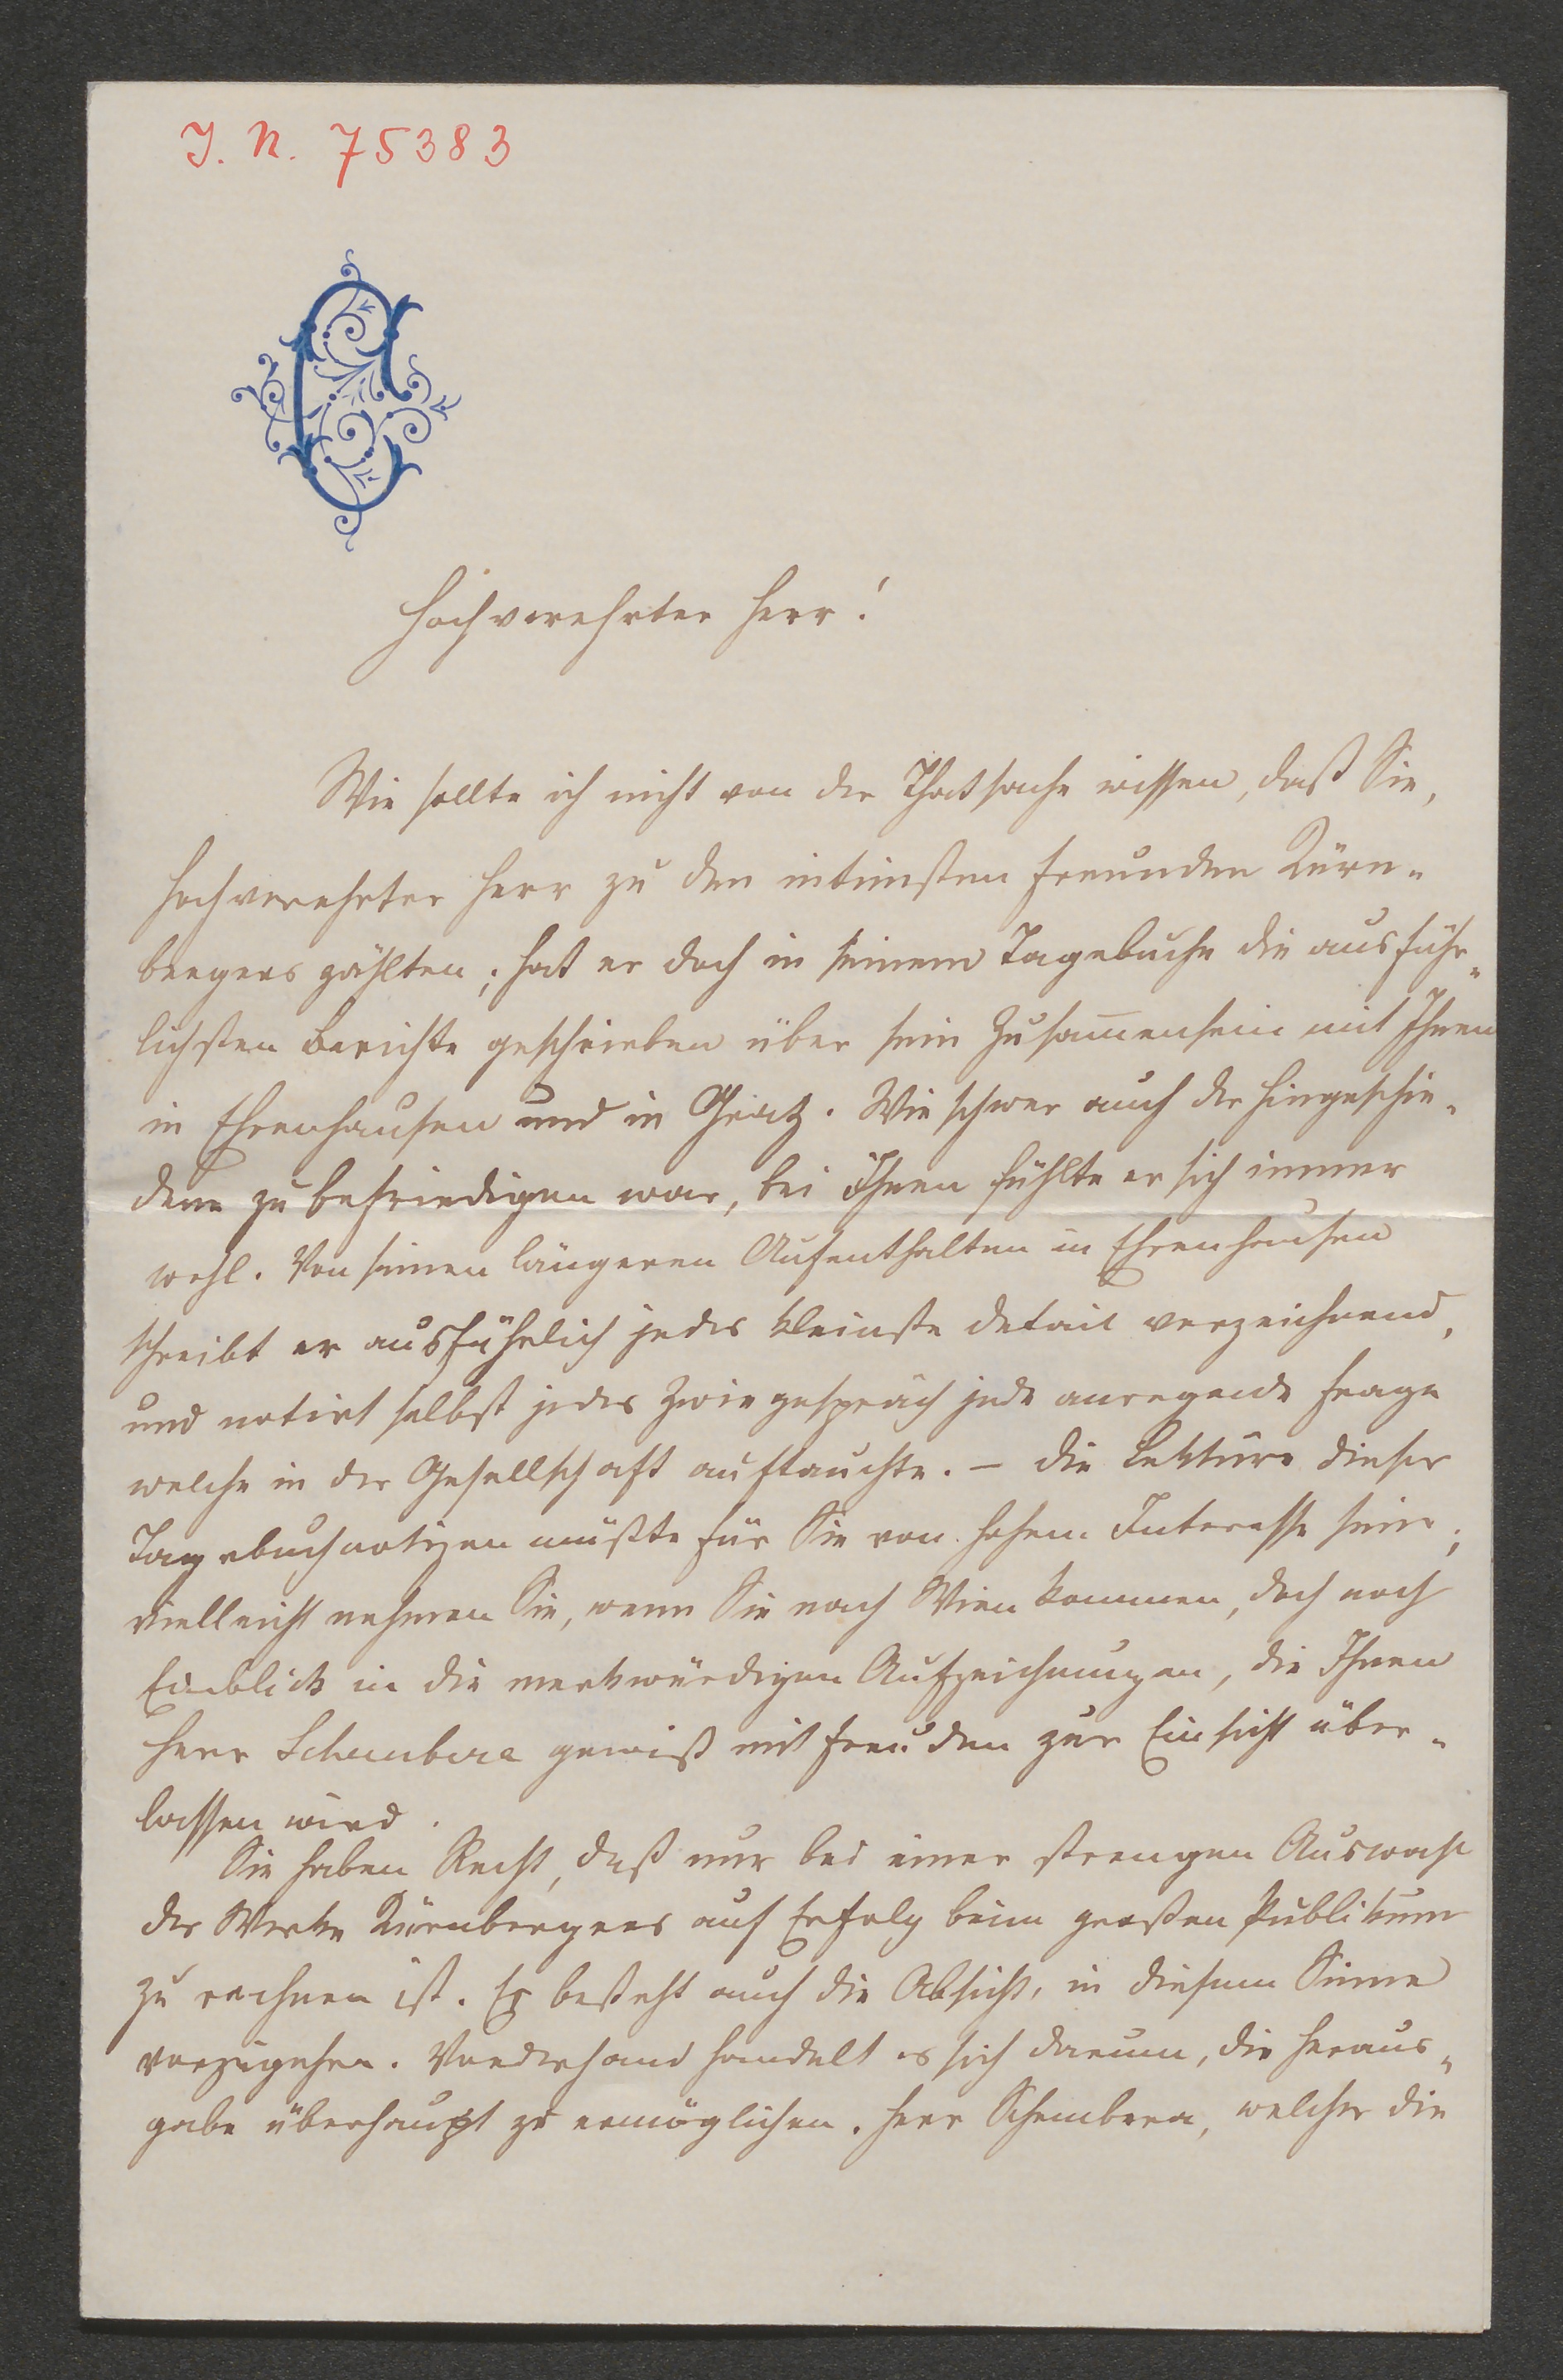 J. N. 75383
Hochverehrter Herr!
Wie sollte ich nicht von der Thatsache wissen, daß Sie,
hochverehrter Herr zu den intimsten Freunden Kürn-
bergers zählten; hat er doch in seinem Tagebuche die ausführ-
lichsten Berichte geschrieben über sein Zusam̅ensein mit Ihnen
in Ehrenhausen und in Gratz. Wie schwer auch der Hingeschie-
dene zu befriedigen war, bei Ihnen fühlte er sich immer
wohl. Von seinen längeren Aufenthalten in Ehrenhausen
schreibt er ausführlich jedes kleinste Detail verzeichnend,
und notirt selbst jedes Zwiegespräch jede anregende Frage
welche in der Gesellschaft auftauchte. – Die Lektüre dieser
Tagebuchnotizen müßte für Sie von hohem Interesse sein;
vielleicht nehmen Sie, wenn Sie nach Wien kommen, doch noch
Einblick in die merkwürdigen Aufzeichnungen, die Ihnen
Herr Schembera gewiß mit Freuden zur Einsicht über-
lassen wird.
Sie haben Recht, daß nur bei einer strengen Auswahl
der Werke Kürnbergers auf Erfolg beim großen Publikum
zu rechnen ist. Es besteht auch die Absicht, in diesem Sinne
vorzugehen. Vorderhand handelt es sich darum, die Heraus-
gabe überhaupt zu ermöglichen. Herr Schembera, welcher die